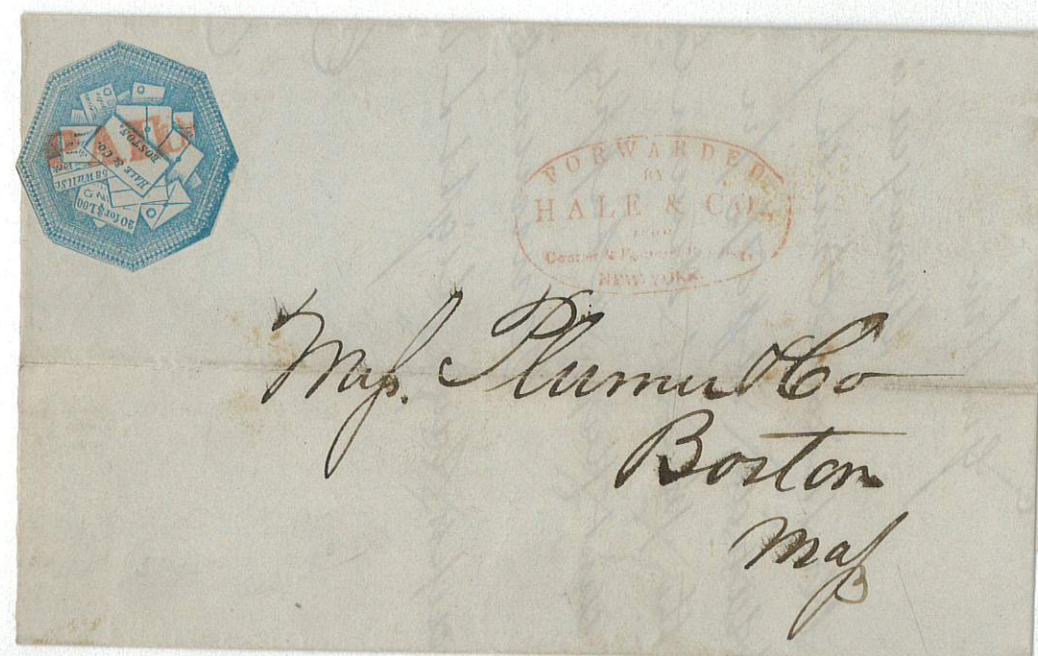 PAID
HALE & CO.
BOSTON.
58 Wall St.
20 for $1.00
FORWARDED
BY
HALE & CO.
FROM
NEW YORK.
Mess. Plumer & Co
Boston
Mass